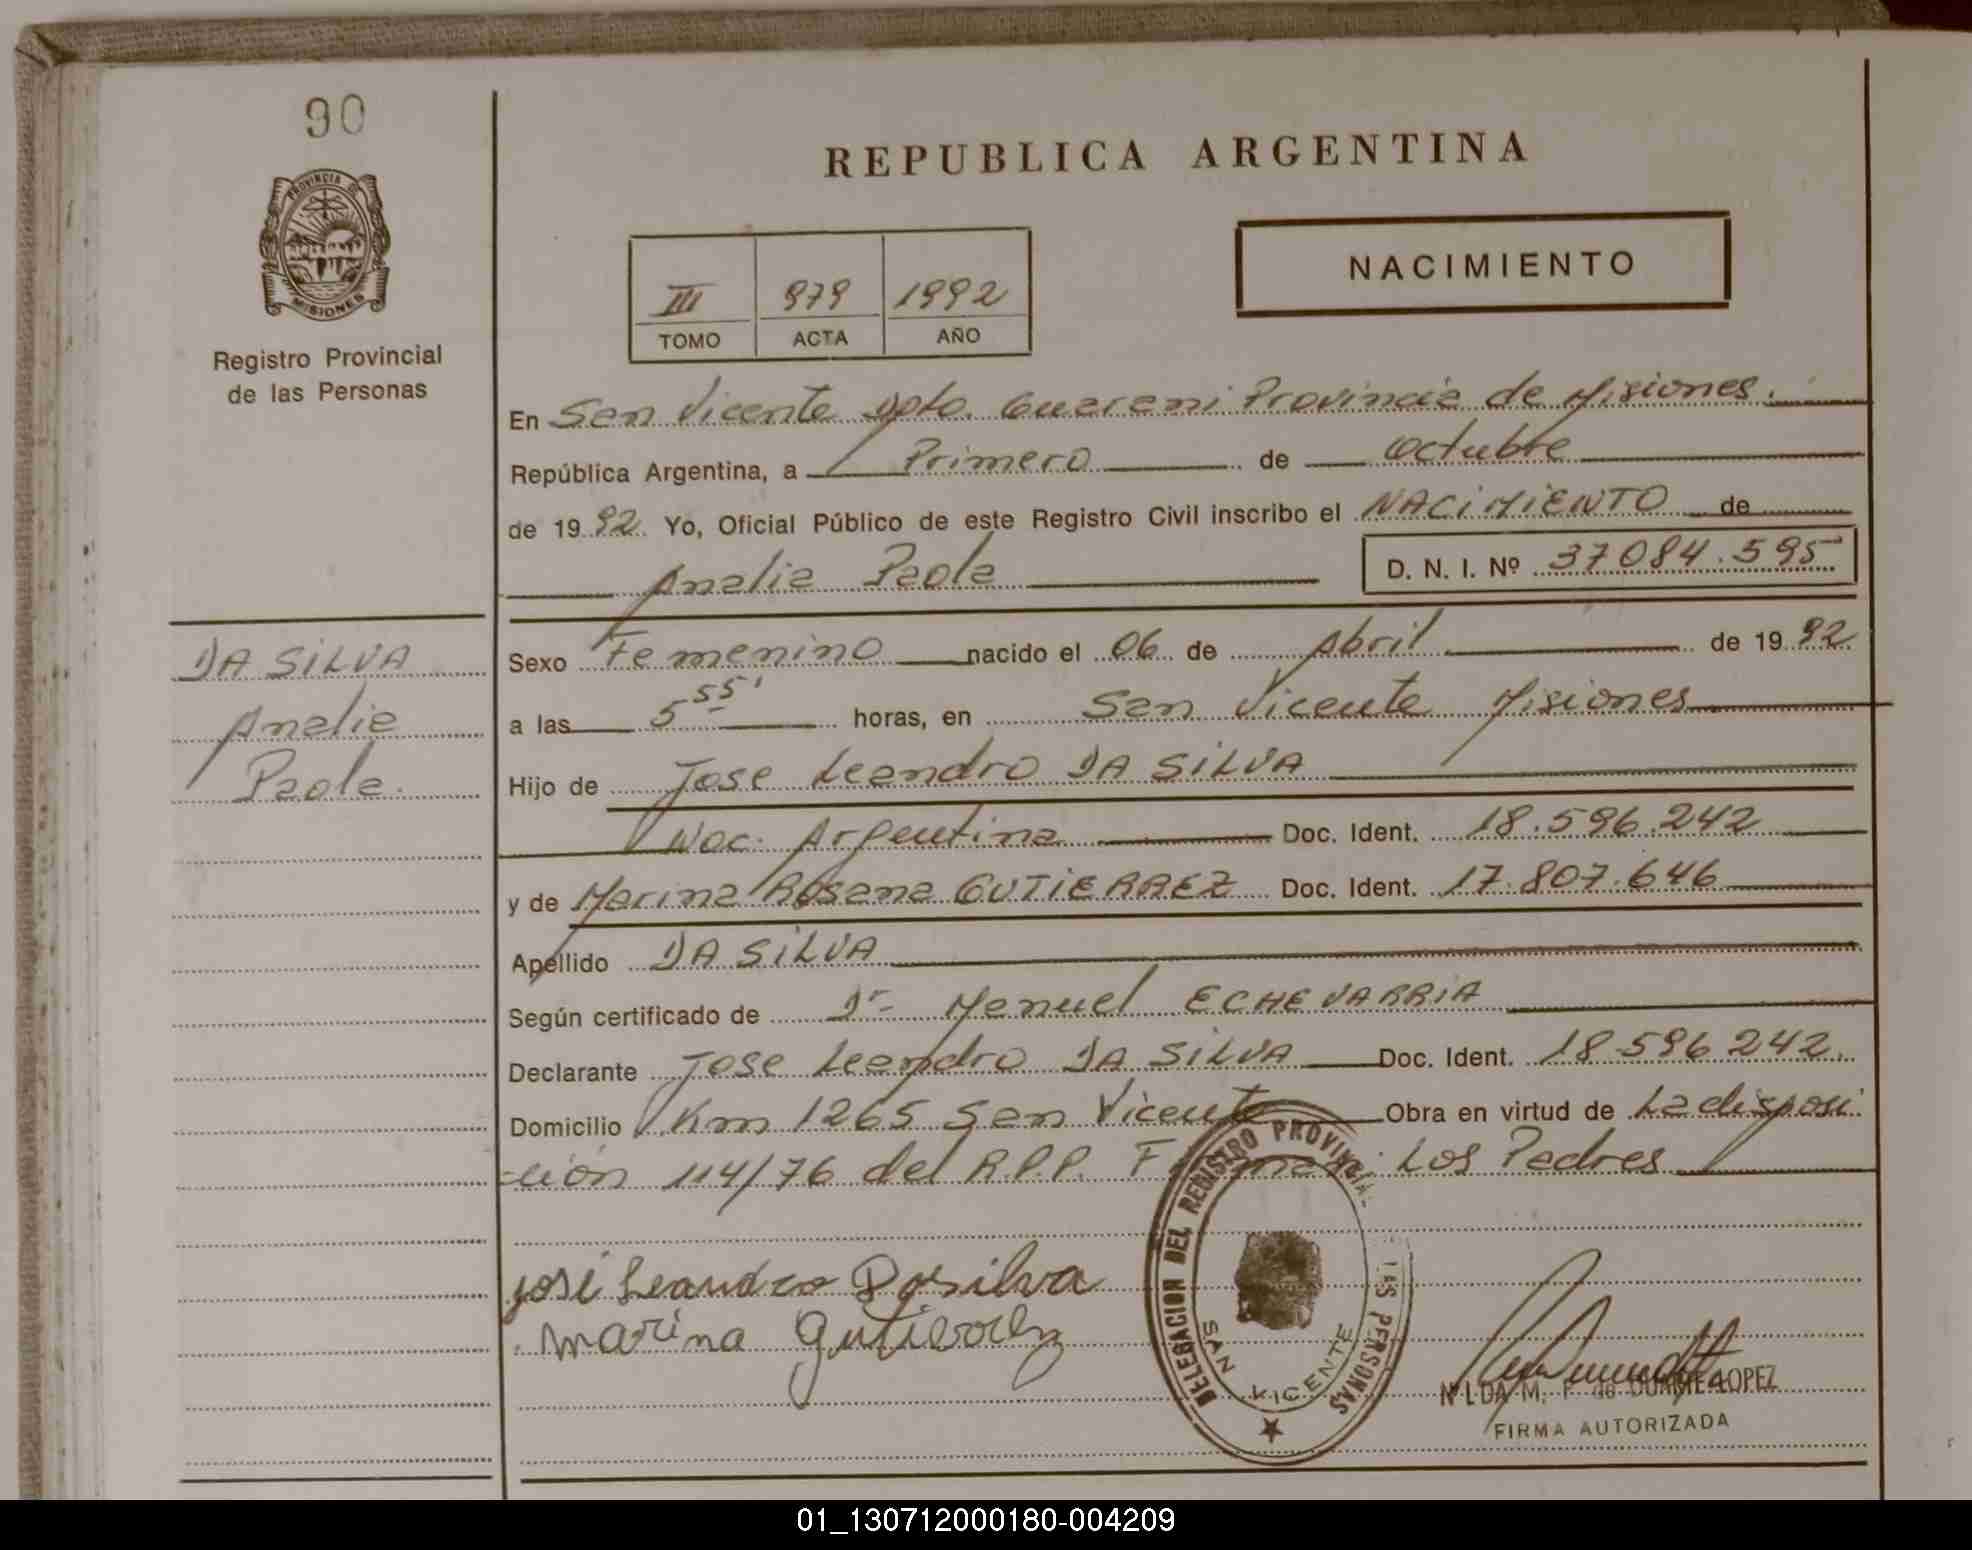 90
PROVINCIA DE
MISIONES
Registro Provincial
de las Personas
REPUBLICA ARGENTINA
III 979 1992
TOMO ACTA AÑO
NACIMIENTO
En San Vicente Dpto. Guarani Provincia de Misiones.
República Argentina, a Primero de octubre
de 1992 Yo, Oficial Público de este Registro Civil inscribo el NACIMIENTO de
Analia Paola D. N. I. Nº 37084.595
DA SILVA
Analia
Paola.
Sexo Femenino nacido el 06 de Abril de 1992
a las 5 55' horas, en San Vicente Misiones
Hijo de Jose Leandro DA SILVA
Nac. Argentina Doc. Ident. 18.596.242
y de Marina Rosana GUTIERREZ Doc. Ident. 17.807.646
Apellido DA SILVA
Según certificado de Dr Manuel ECHEVARRIA
Declarante Jose Leandro DA SILVA Doc. Ident. 18 596 242.
Domicilio Km 1265 San Vicente Obra en virtud de La disposi
ción 114/76 del R.P.P. Los Padres
José Leandro Dasilva
Marina Gutierrez
DELEGACION DEL REGISTRO PROVINCIAL LAS PERSONAS
SAN VICENTE
LOPEZ
FIRMA AUTORIZADA
01_130712000180-004209